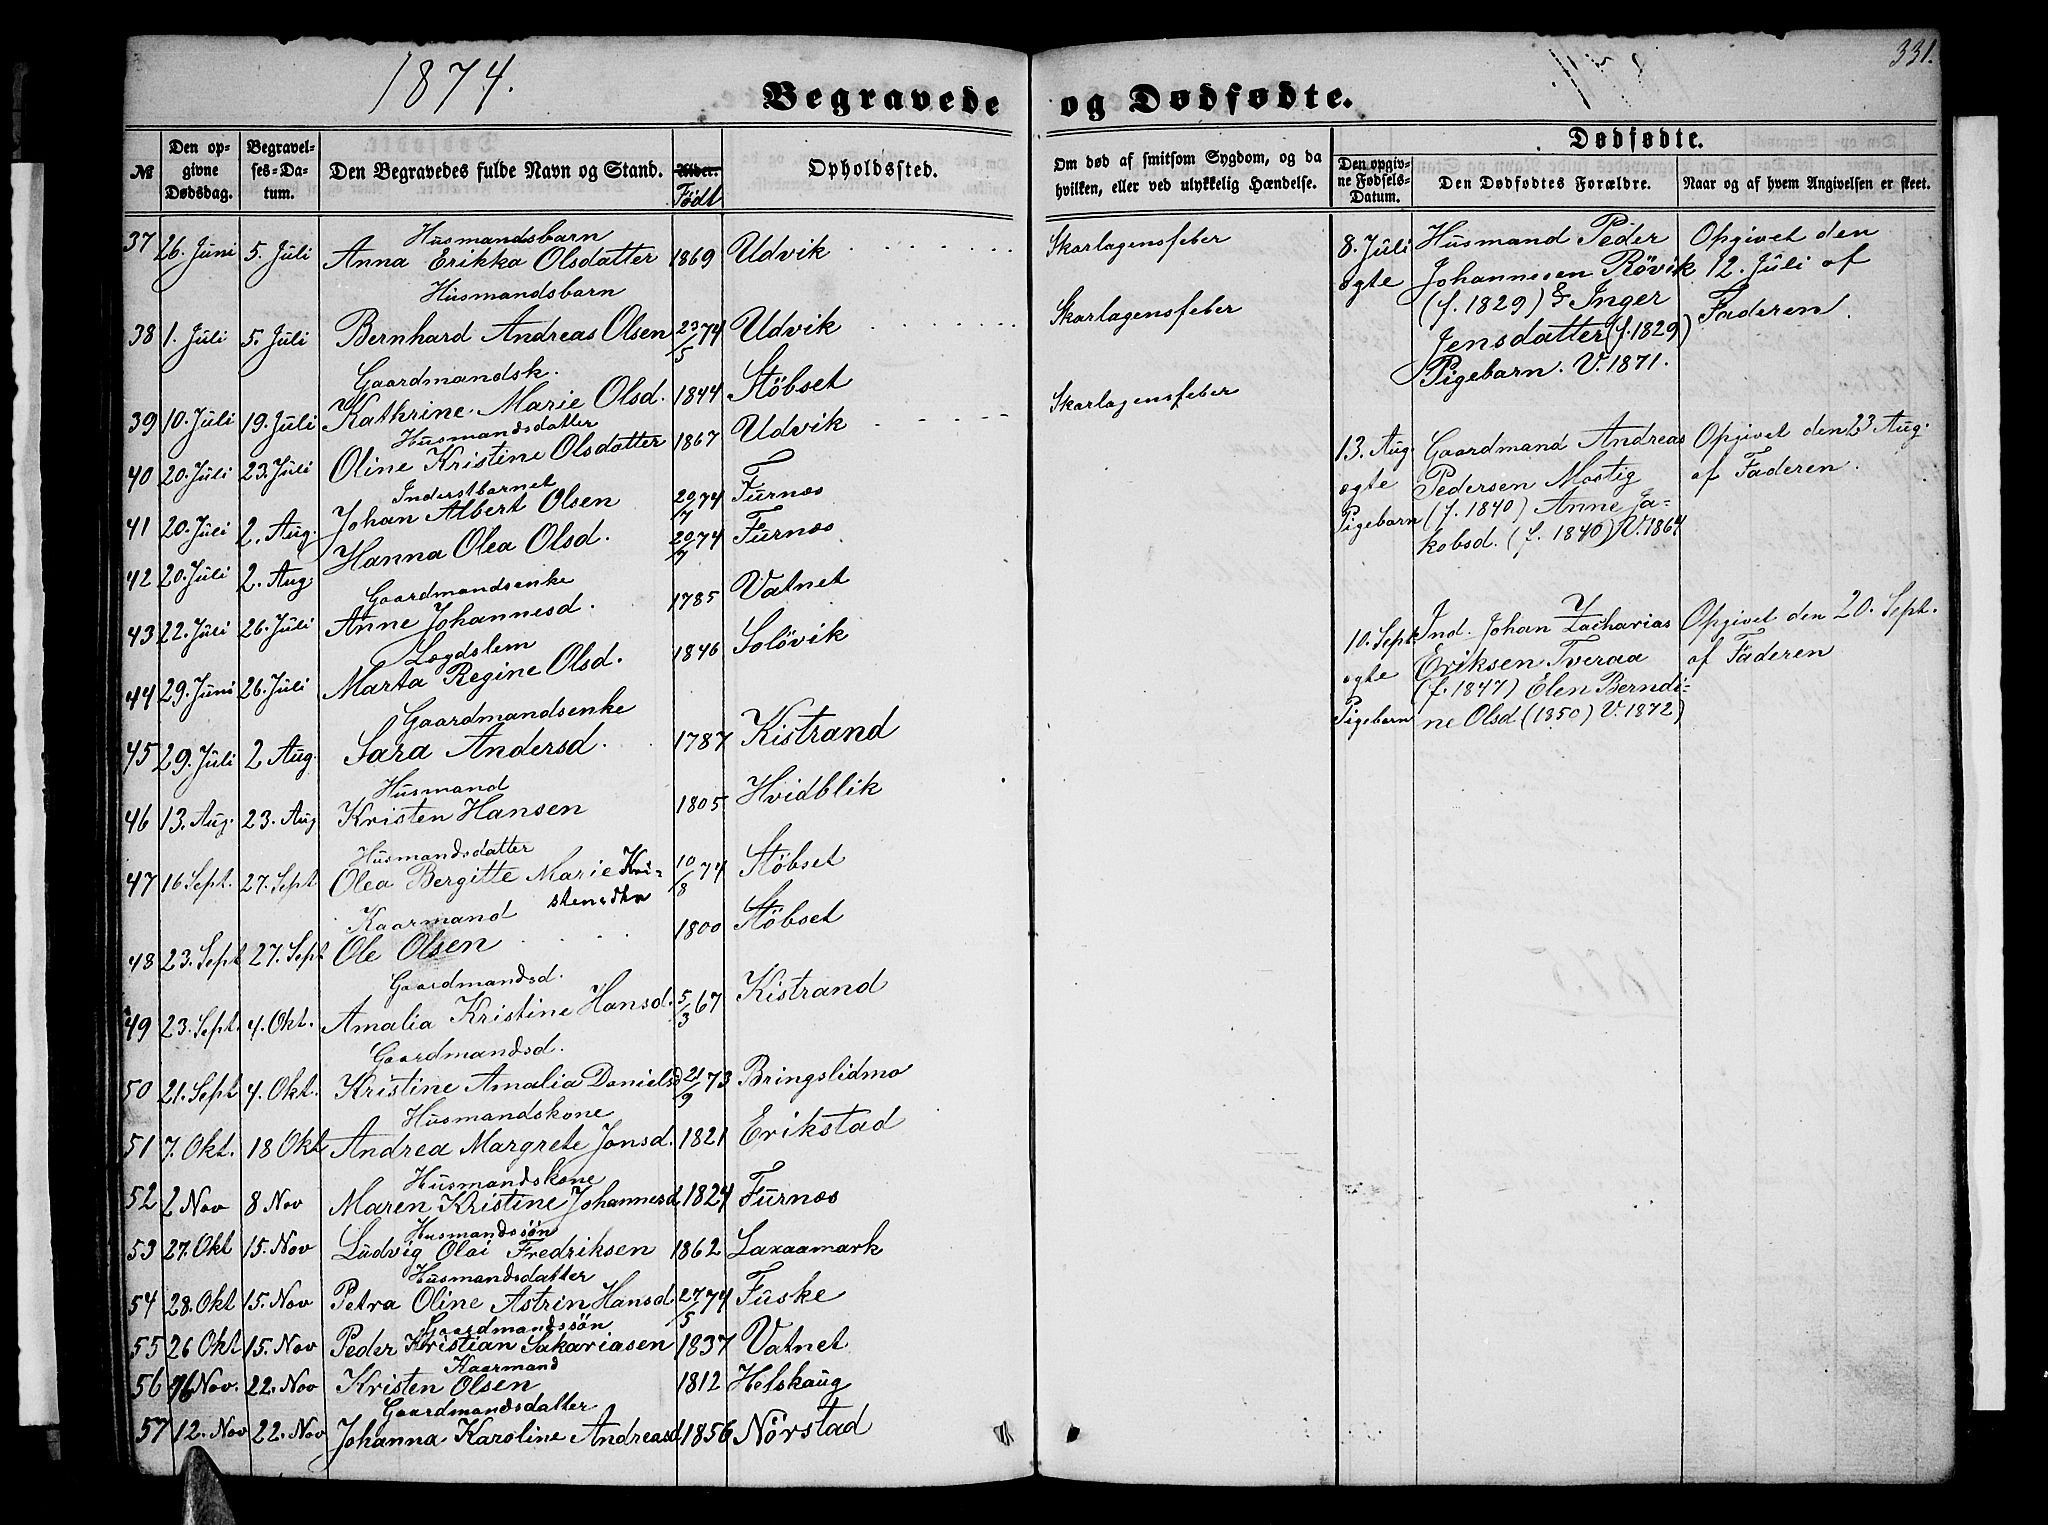 1874.
331.
Begravede og Dødfødte.
Dødfødte.
№
Den opgivne Dødsdag.
Begravelses-Datum.
Den Begravedes fulde Navn og Stand.
Alder.
Født
Opholdssted.
Om død af smitsom Sygdom, og da
hvilken, eller ved ulykkelig Hændelse.
Den opgivne Fødsels-Datum.
Den Dødfødtes Forældre.
Naar og af hvem Angivelsen er skeet.
Husmandsbarn
37 26. Juni 5. Juli Anna Erikka Olsdatter 1869 Udvik Skarlagensfeber
Husmandsbarn
38 1. Juli 5. Juli Bernhard Andreas Olsen 23/5 74 Udvik Skarlagensfeber
Gaardmandsk.
39 10. Juli 19. Juli Kathrine Marie Olsd. 1844 Stöbset
Husmandsdatter
40 20. Juli 23. Juli Oline Kristine Olsdatter 1867 Udvik Skarlagensfeber
Inderstbarnet
41 20. Juli 2. Aug. Johan Albert Olsen 20/7 74 Furnæs
42 20. Juli 2. Aug. Hanna Olea Olsd. 20/7 74 Furnæs
Gaardmandsenke
43 22. Juli 26. Juli Anne Johannesd. 1785 Vatnet
Lægdslem
44 29. Juni 26. Juli Marta Regine Olsd. 1846 Solövik
Gaardmandsenke
45 29. Juli 2 Aug. Sara Andersd. 1787 Kistrand
Husmand
46 13. Aug. 23. Aug Kristen Hansen 1805 Hvidblik
Husmandsdatter
47 16 Sept. 27. Sept Olea Bergitte Marie Kri- 10/8 74 Stöbset
stensdtr
Kaarmand
48 23. Sept 27. Sept Ole Olsen 1800 Stöbset
Gaardmandsd.
49 23. Sept. 4. Okt. Amalia Kristine Hansd. 5/3 67 Kistrand
Gaardmandsd.
50 21. Sept 4. Okt. Kristine Amalia Danielsd 21/9 73 Bringslidmo
Husmandskone
51 7. Okt. 18 Okt Andrea Margrete Jonsd. 1821 Erikstad
Husmandskone
52 2 Nov 8 Nov Maren Kristine Johannesd 1824 Furnæs
Husmandssön
53 27. Okt 15. Nov Ludvig Olai Fredriksen 1862 Laxaamark
Husmandsdatter
54 28. Okt 15. Nov Petra Oline Astrin Hansd 27/5 74 Fuske
Gaardmandssön
55 26 Okt 15. Nov Peder Kristian Sakariasen 1837 Vatnet
Kaarmand
56 16 Nov. 22. Nov Kristen Olsen 1812 Helskaug
Gaardmandsdatter
57 12. Nov 22. Nov Johanna Karoline Andreasd 1856 Nörstad
8. Juli Husmand Peder Opgivet den
ægte Johannesen Rövik 12. Juli af
(f. 1829) & Inger Faderen.
Jensdatter (f. 1829)
Pigebarn. V. 1871.
13. Aug. Gaardmand Andreas Opgivet den 23 Aug.
ægte Pedersen Mostig af Faderen.
Pigebarn (f. 1840) Anne Ja-
kobsd. (f. 1840) V. 1864
10. Sept. Ind. Johan Zacharias Opgivet den 20. Sept.
ægte Eriksen Tveraa af Faderen
(f. 1847) Elen Berndi-
Pigebarn ne Olsd (1850) V. 1872)